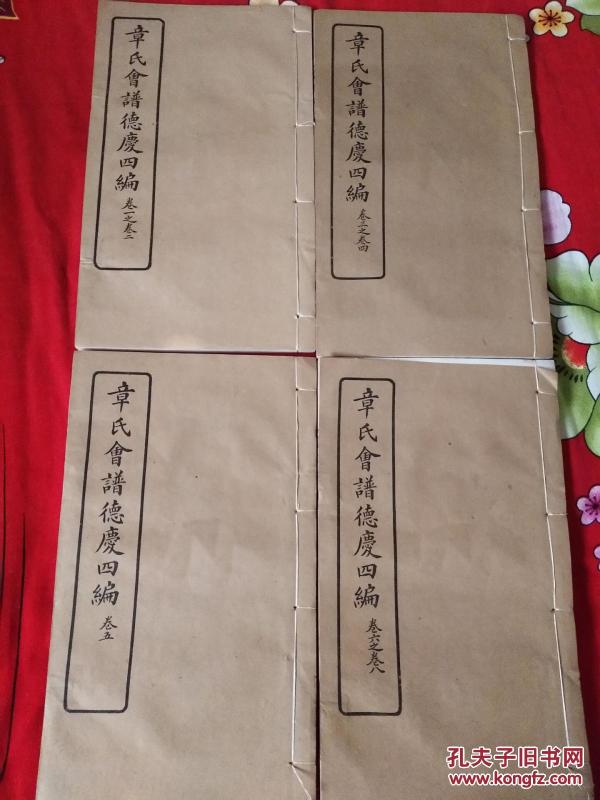 章氏會譜德慶四編 卷一之卷二
章氏會譜德慶四編 卷三之卷四
章氏會譜德慶四編 卷五
章氏會譜德慶四編 卷六之卷八
孔夫子旧书网
www.kongfz.com